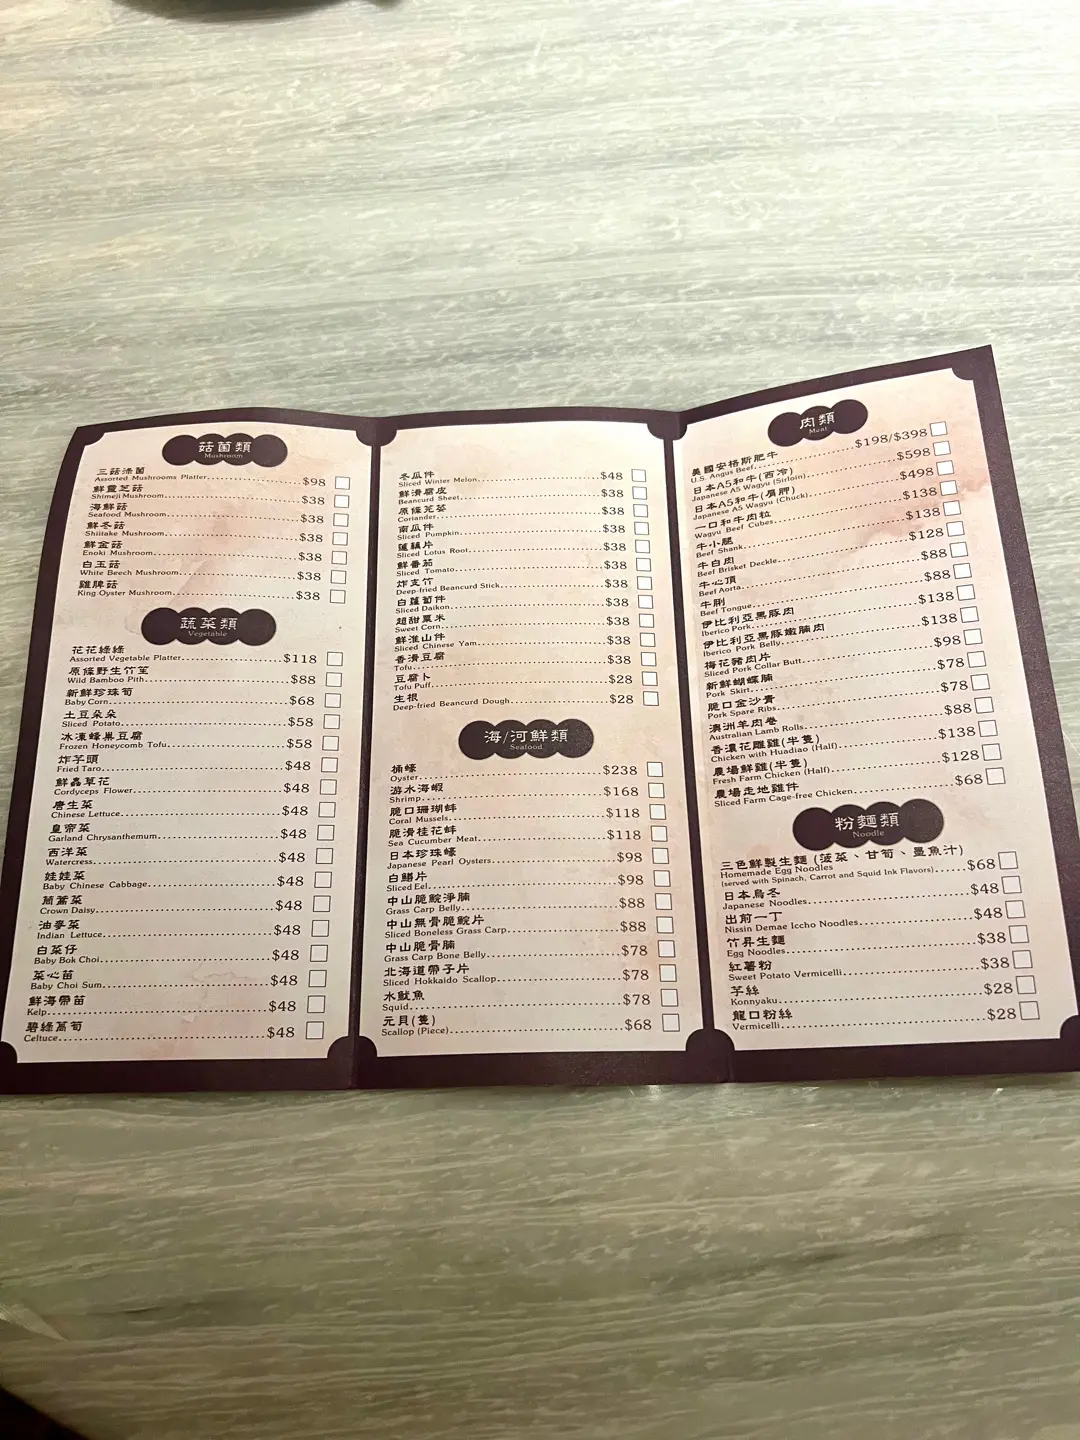 菇菌類
Mushroom
三菇滌菌
Assorted Mushrooms Platter $98
鮮靈芝菇
Shimeji Mushroom $38
海鮮菇
Seafood Mushroom $38
鮮冬菇
Shiitake Mushroom $38
鮮金菇
Enoki Mushroom $38
白玉菇
White Beech Mushroom $38
雞脾菇
King Oyster Mushroom $38
蔬菜類
Vegetable
花花綠綠
Assorted Vegetable Platter $118
原條野生竹笙
Wild Bamboo Pith $88
新鮮珍珠筍
Baby Corn $68
土豆朵朵
Sliced Potato $58
冰凍蜂巢豆腐
Frozen Honeycomb Tofu $58
炸芋頭
Fried Taro $48
鮮蟲草花
Cordyceps Flower $48
唐生菜
Chinese Lettuce $48
皇帝菜
Garland Chrysanthemum $48
西洋菜
Watercress $48
娃娃菜
Baby Chinese Cabbage $48
茼蒿菜
Crown Daisy $48
油麥菜
Indian Lettuce $48
白菜仔
Baby Bok Choi $48
菜心苗
Baby Choi Sum $48
鮮海帶苗
Kelp $48
碧綠萵筍
Celtuce $48
冬瓜件
Sliced Winter Melon $48
鮮滑腐皮
Beancurd Sheet $38
原條芫荽
Coriander $38
南瓜件
Sliced Pumpkin $38
蓮藕片
Sliced Lotus Root $38
鮮番茄
Sliced Tomato $38
炸支竹
Deep-fried Beancurd Stick $38
白蘿蔔件
Sliced Daikon $38
超甜粟米
Sweet Corn $38
鮮淮山件
Sliced Chinese Yam $38
香滑豆腐
Tofu $38
豆腐卜
Tofu Puff $28
生根
Deep-fried Beancurd Dough $28
海/河鮮類
Seafood
桶蠔
Oyster $238
游水海蝦
Shrimp $168
脆口珊瑚蚌
Coral Mussels $118
脆滑桂花蚌
Sea Cucumber Meat $118
日本珍珠蠔
Japanese Pearl Oysters $98
白鱔片
Sliced Eel $98
中山脆鯇淨腩
Grass Carp Belly $88
中山無骨脆鯇片
Sliced Boneless Grass Carp $88
中山脆骨腩
Grass Carp Bone Belly $78
北海道帶子片
Sliced Hokkaido Scallop $78
水魷魚
Squid $78
元貝(隻)
Scallop (Piece) $68
肉類
Meat
美國安格斯肥牛
U.S. Angus Beef $198/$398
日本A5和牛(西冷)
Japanese A5 Wagyu (Sirloin) $598
日本A5和牛(肩胛)
Japanese A5 Wagyu (Chuck) $498
一口和牛肉粒
Wagyu Beef Cubes $138
牛小腿
Beef Shank $138
牛白肉
Beef Brisket Deckle $128
牛心頂
Beef Aorta $88
牛脷
Beef Tongue $88
伊比利亞黑豚肉
Iberico Pork $138
伊比利亞黑豚嫩腩肉
Iberico Pork Belly $138
梅花豬肉片
Sliced Pork Collar Butt $98
新鮮蝴蝶腩
Pork Skirt $78
脆口金沙骨
Pork Spare Ribs $78
澳洲羊肉卷
Australian Lamb Rolls $88
香濃花雕雞(半隻)
Chicken with Huadiao (Half) $138
農場鮮雞(半隻)
Fresh Farm Chicken (Half) $128
農場走地雞件
Sliced Farm Cage-free Chicken $68
粉麵類
Noodle
三色鮮製生麵 (菠菜、甘筍、墨魚汁)
Homemade Egg Noodles
(served with Spinach, Carrot and Squid Ink Flavors) $68
日本烏冬
Japanese Noodles $48
出前一丁
Nissin Demae Iccho Noodles $48
竹昇生麵
Egg Noodles $38
紅薯粉
Sweet Potato Vermicelli $38
芋絲
Konnyaku $28
龍口粉絲
Vermicelli $28